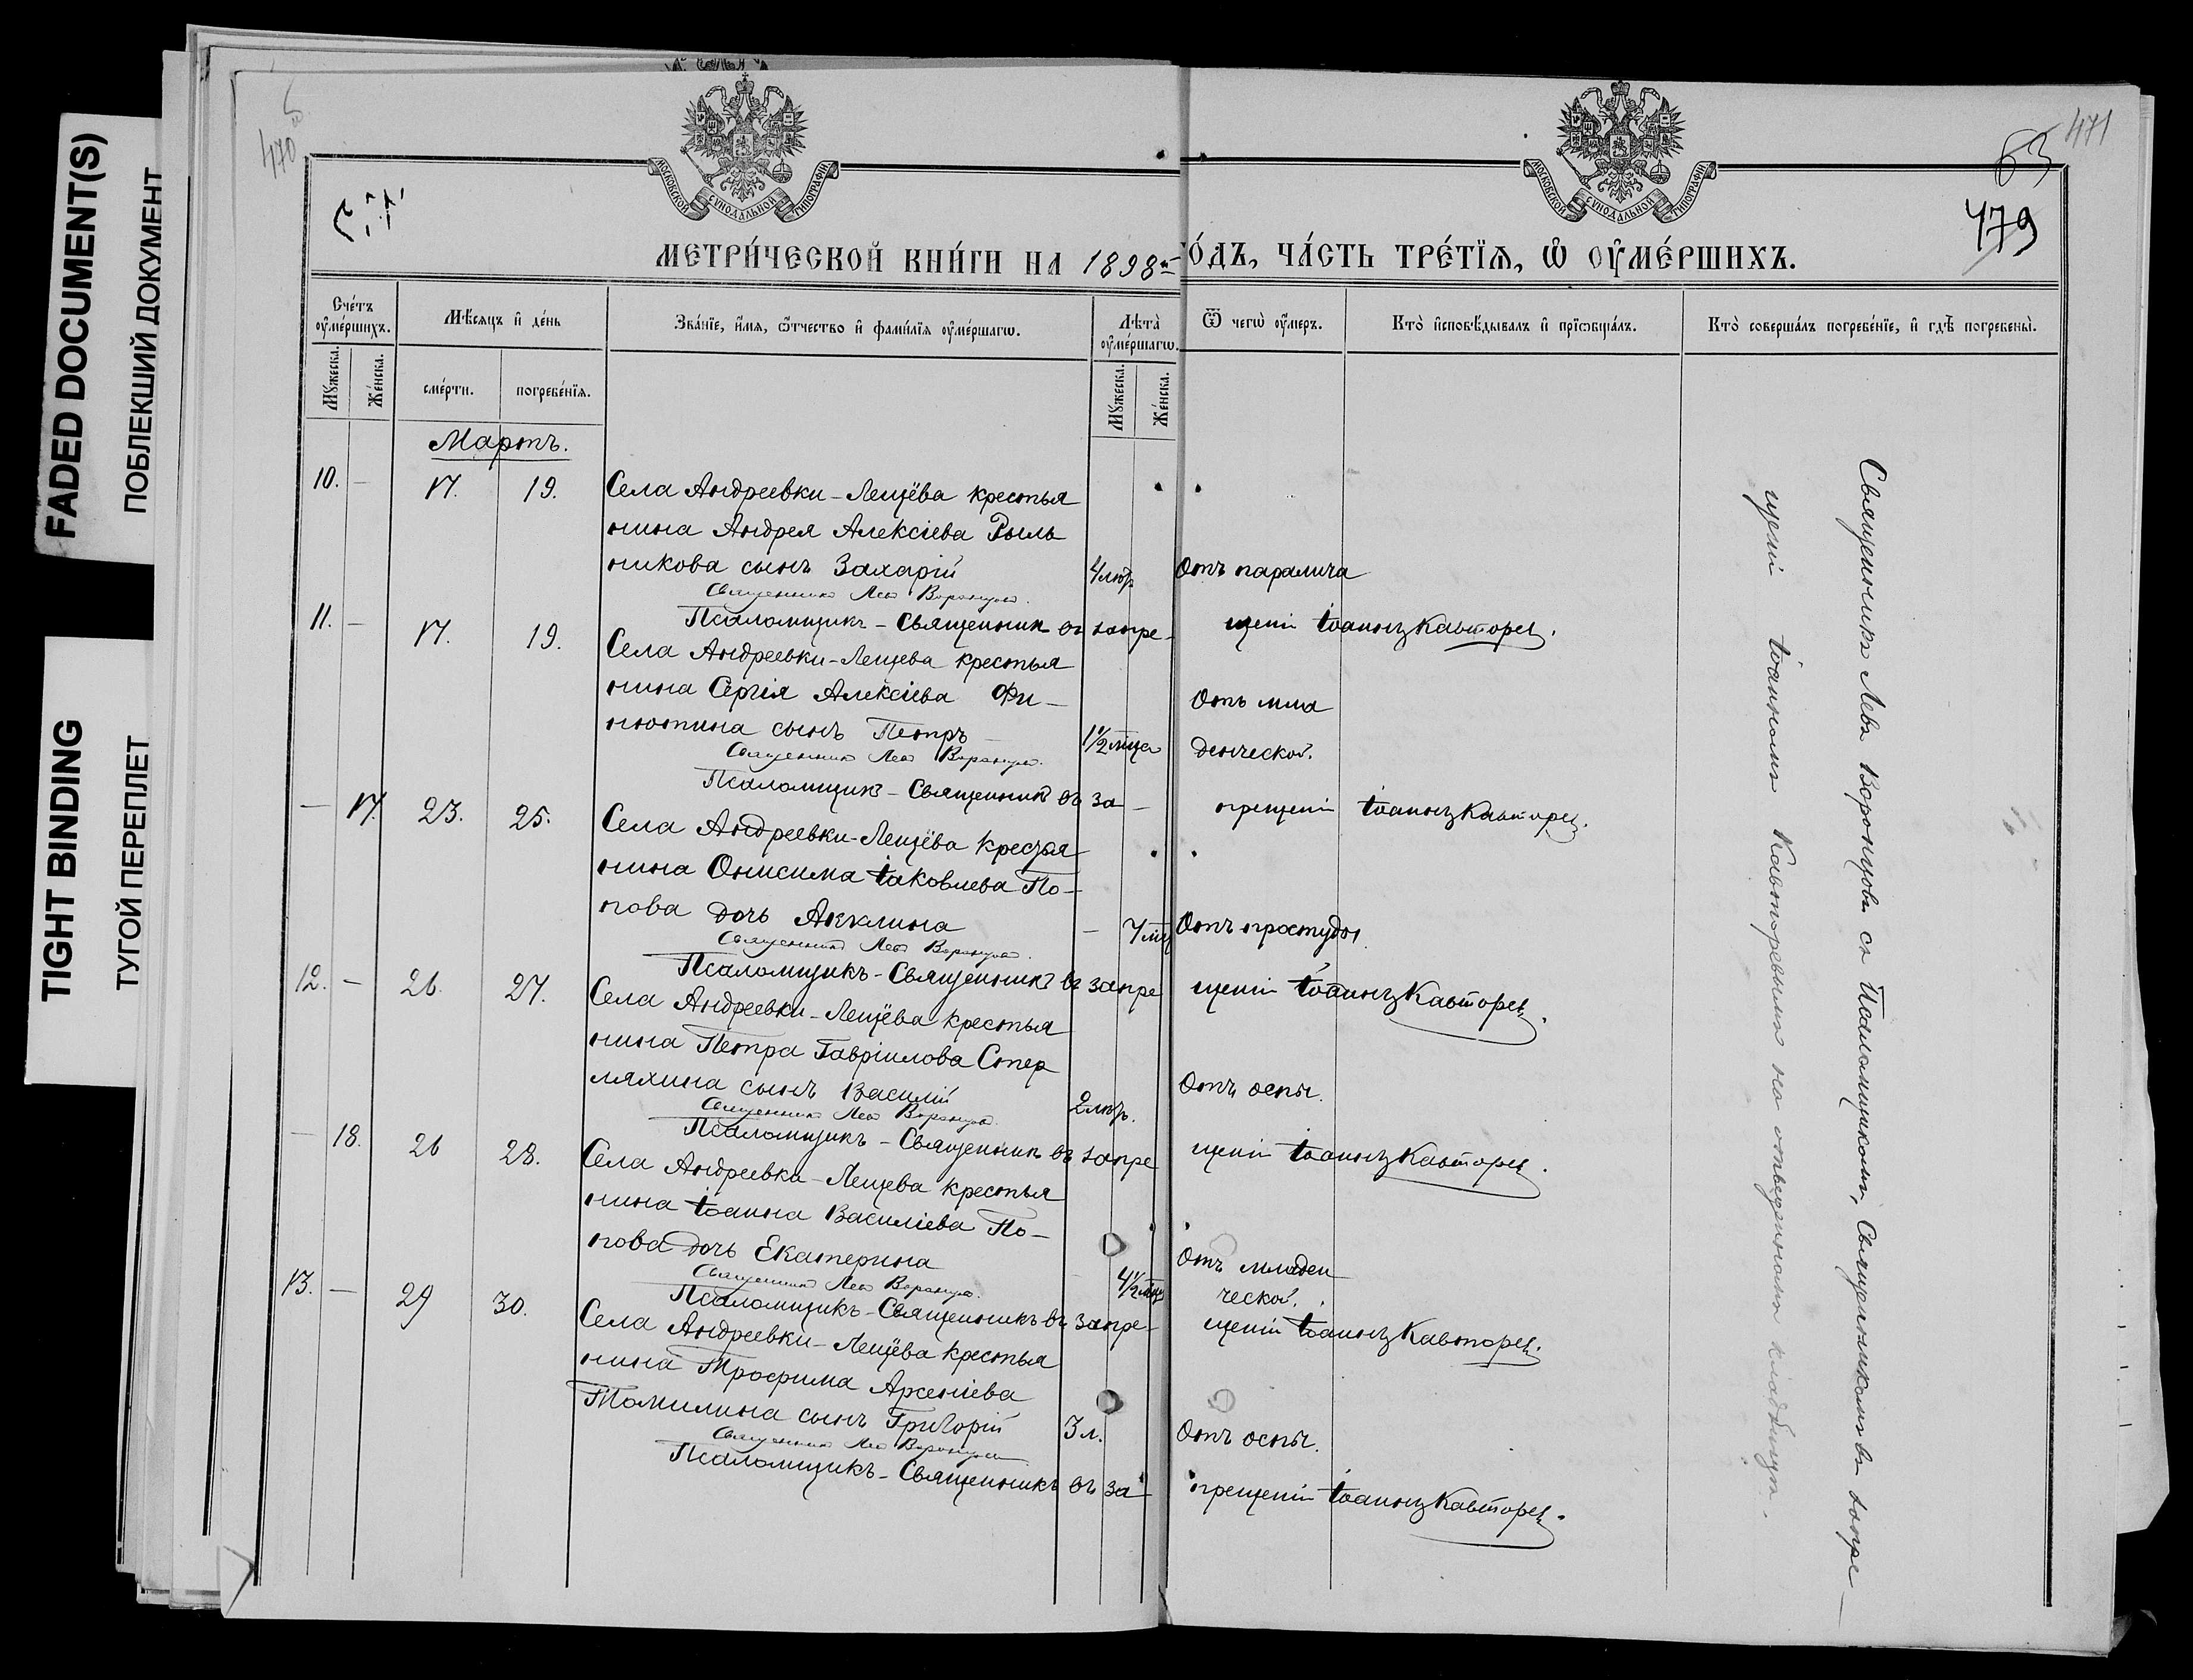 FADED DOCUMENT(S)
ПОБЛЕКШИЙ ДОКУМЕНТ
TIGHT BINDING
ТУГОЙ ПЕРЕПЛЕТ
470
471
63
479
МОСКОВСКОЙ СѴНОДАЛЬНОЙ ТИПОГРАФІИ
МОСКОВСКОЙ СѴНОДАЛЬНОЙ ТИПОГРАФІИ
МЕТРИ́ЧЕСКОЙ КНИ́ГИ НА 1898й ГО́ДЪ, ЧА́СТЬ ТРЕ́ТІѦ, Ѡ҆ ОУ҆МЕ́РШИХЪ.
Сче́тъ оу҆ме́ршихъ.
Мꙋ́жеска.
Же́нска.
Мѣ́сяцъ и҆ де́нь
сме́рти.
погребе́нїя.
Зва́нїе, и҆́мя, ѻ҆́тчество и҆ фами́лїя оу҆ме́ршагѡ.
Лѣ́та оу҆ме́ршагѡ.
Мꙋ́жеска.
Же́нска.
Ѿ чегѡ̀ оу҆́меръ.
Кто̀ и҆сповѣ́дывалъ и҆ прїѡбща́лъ.
Кто̀ соверша́лъ погребе́нїе, и҆ гдѣ̀ погребены̀.
Мартъ.
10. – 17. 19. Села Андреевки-Лещёва крестья
нина Андрея Алексіева Рыль
никова сынъ Захарій 4 Отъ паралича
Священникъ Левъ Воронцовъ.
Псаломщикъ - Священник въ запре- щеніи Іоаннъ Кавторев.
11. – 17. 19. Села Андреевки-Лещева крестья
нина Сергія Алексіева Фи- Отъ мла
нютина сынъ Петръ 1 1/2 мца денческой.
Священникъ Левъ Воронцовъ.
Псаломщикъ - Священникъ въ за- прещеніи Іоаннъ Кавторев.
– 17. 23. 25. Села Андреевки-Лещёва крестья
нина Онисима Іаковлева По-
пова дочь Акилина – 7 мц Отъ простуды
Священникъ Левъ Воронцовъ.
Псаломщикъ - Священникъ въ запре щеніи Іоаннъ Кавторев.
12. – 26. 27. Села Андреевки-Лещёва крестья
нина Петра Гавріилова Стер
ляхина сынъ Василій 2 Отъ оспы.
Священникъ Левъ Воронцовъ
Псаломщикъ - Священник въ запре щеніи Іоаннъ Кавторев.
– 18. 26 28. Села Андреевки-Лещева крестья
нина Іоанна Василіева По-
пова дочь Екатерина 4 1/2 мц Отъ младен
ческой.
Священникъ Левъ Воронцовъ.
Псаломщикъ - Священникъ въ запре- щеніи Іоаннъ Кавторев.
13. – 29 30. Села Андреевки-Лещёва крестья
нина Трофима Арсеніева
Томилина сынъ Григорій 3 л. Отъ оспы.
Священникъ Левъ Воронцовъ
Псаломщикъ - Священникъ въ за прещеніи Іоаннъ Кавторев.
Священникъ Левъ Воронцовъ съ Псаломщикомъ, Священникомъ въ запре-
щеніи Іоанномъ Кавторевымъ на отведенномъ кладбищѣ.